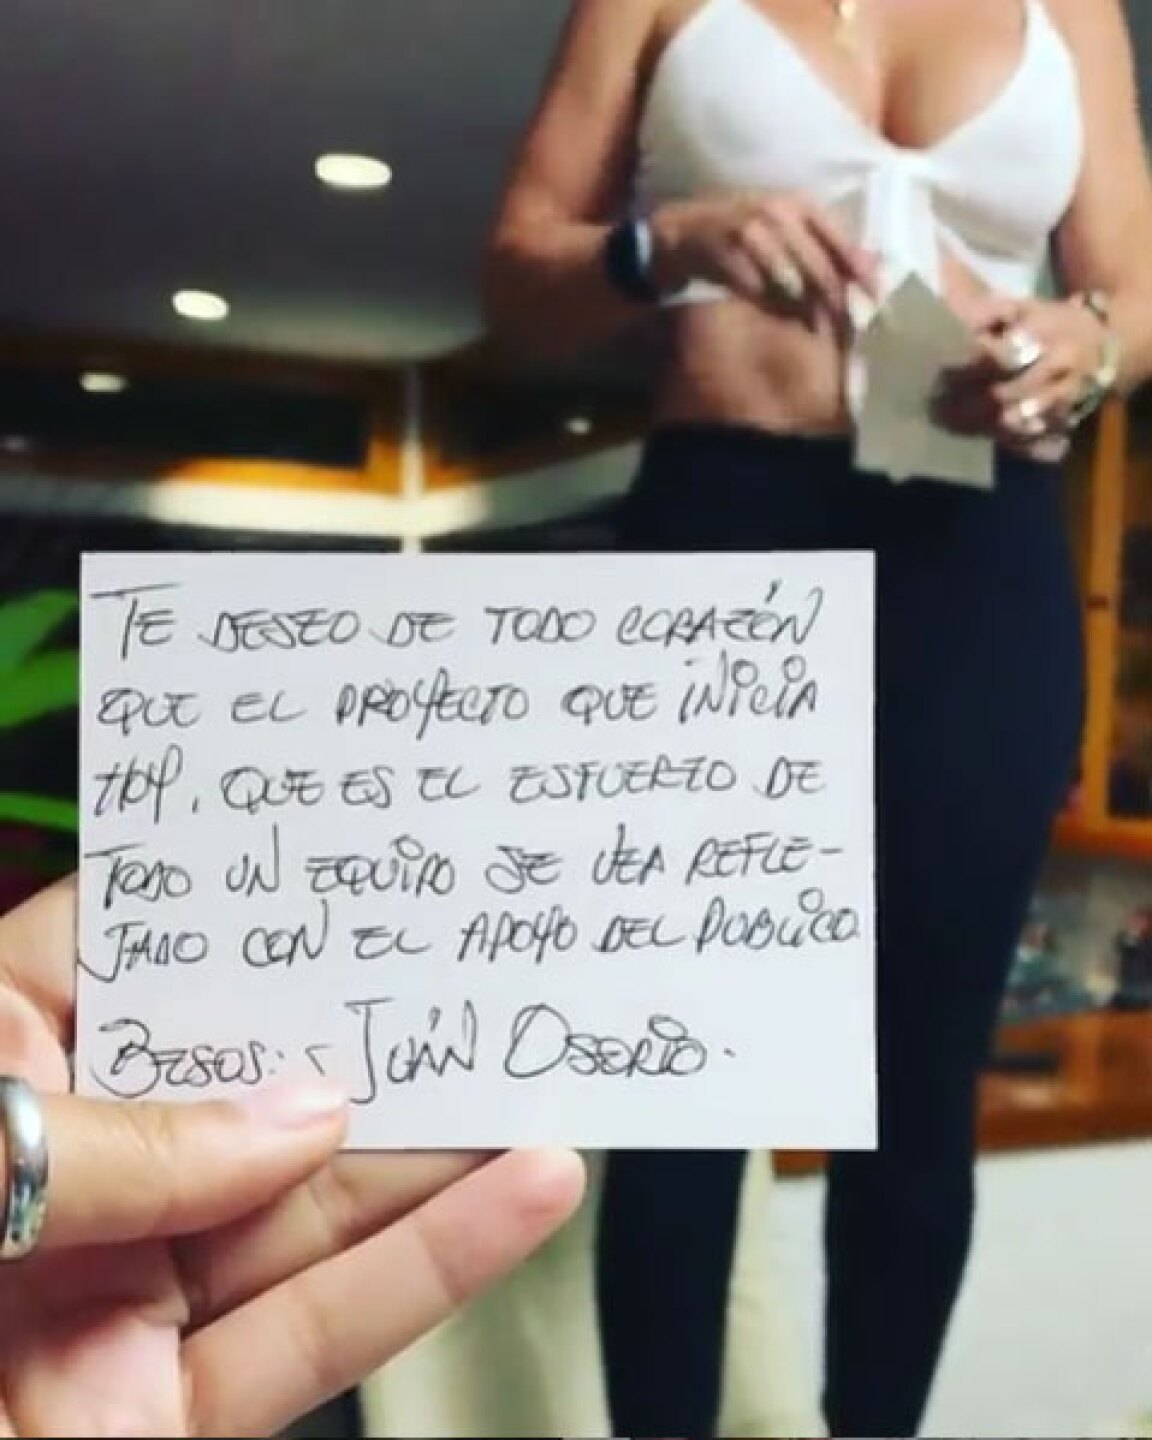 TE DESEO DE TODO CORAZÓN
QUE EL PROYECTO QUE INICIA
HOY, QUE ES EL ESFUERZO DE
TODO UN EQUIPO SE VEA REFLE-
JADO CON EL APOYO DEL PUBLICO
BESOS: JUAN OSORIO.